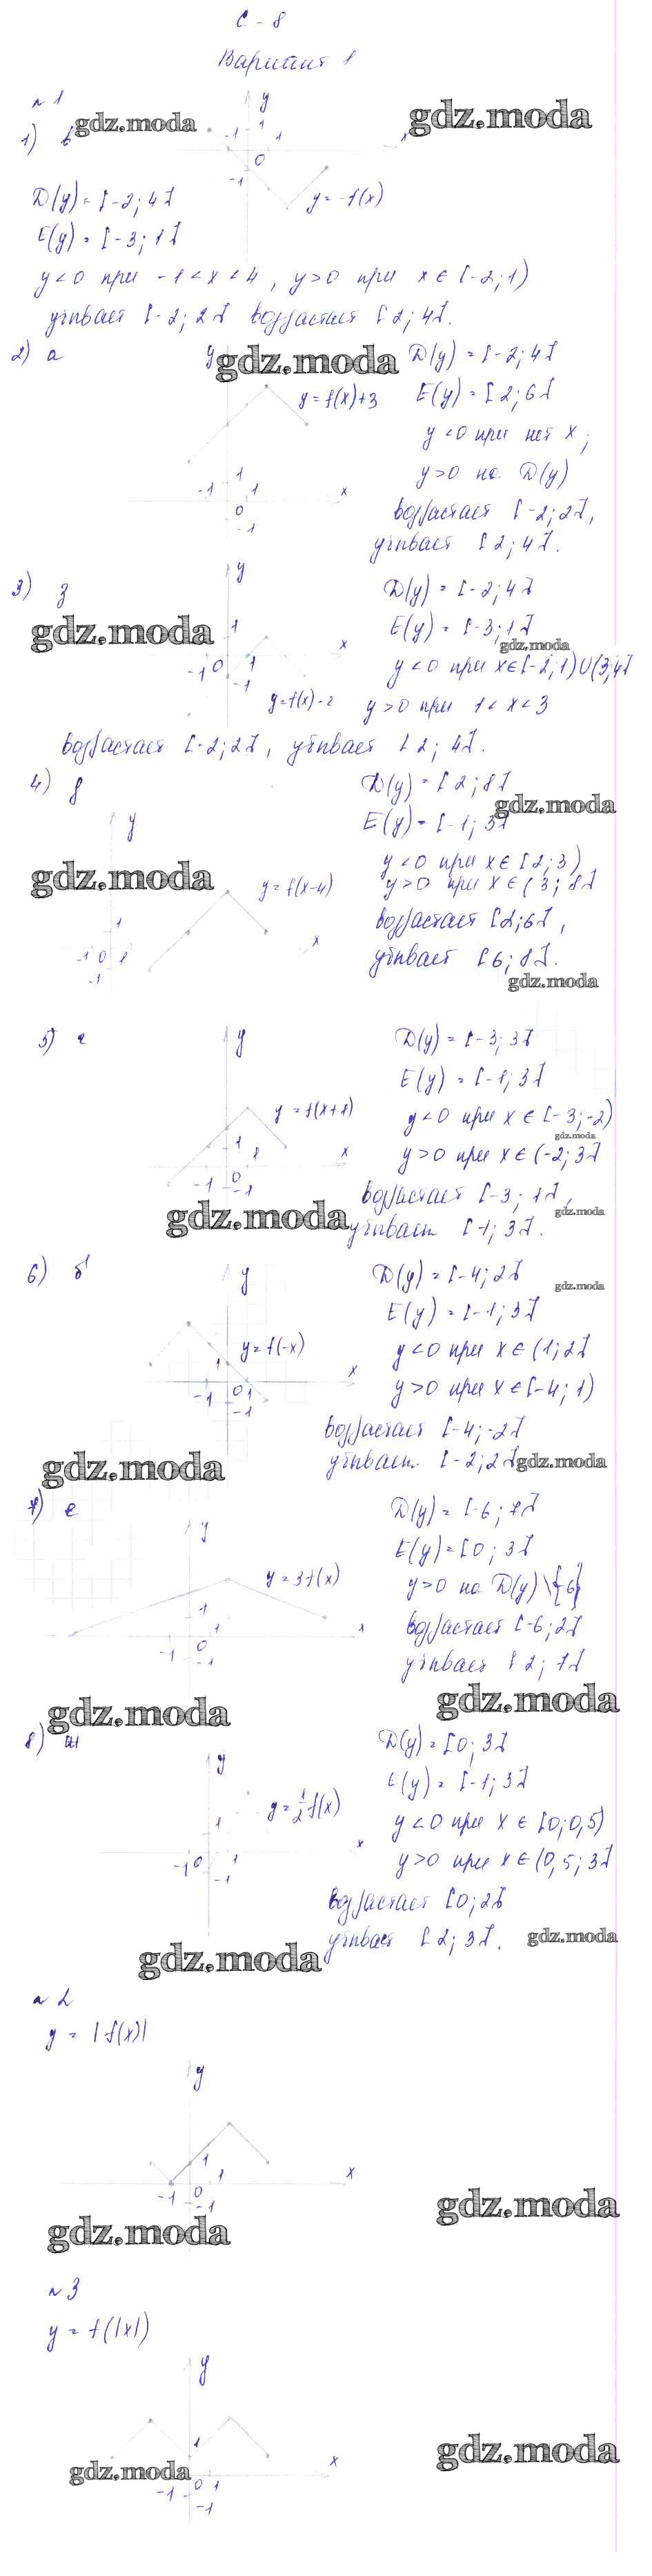 С - 8
Вариант 1
№ 1
1) в
gdz.moda
gdz.moda
y
x
-1
1
1
0
-1
y = -f(x)
D(y) = [-2; 4]
E(y) = [-3; 1]
y<0 при -1<x<4, y>0 при x ∈ [-2; 1)
убывает [-2; 2] возрастает [2; 4].
2) а
y
gdz.moda
y = f(x)+3
1
-1
1
x
0
-1
D(y) = [-2; 4]
E(y) = [2; 6]
y<0 при нет x;
y>0 на D(y)
возрастает [-2; 2],
убывает [2; 4].
3) з
y
gdz.moda
1
x
-1
0
1
-1
y=f(x)-2
D(y) = [-2; 4]
E(y) = [-3; 1]
gdz.moda
y<0 при x∈[-2; 1)∪(3; 4]
y>0 при 1<x<3
возрастает [-2; 2], убывает [2; 4].
4) д
y
gdz.moda
y=f(x-4)
1
x
-1
0
1
-1
D(y) = [2; 8]
gdz.moda
E(y) = [-1; 3]
y<0 при x∈[2; 3)
y>0 при x∈(3; 8]
возрастает [2; 6],
убывает [6; 8].
gdz.moda
5) г
y
y = f(x+1)
1
1
x
-1
0
-1
gdz.moda
D(y) = [-3; 3]
E(y) = [-1; 3]
y<0 при x ∈ [-3; -2)
gdz.moda
y>0 при x∈(-2; 3]
возрастает [-3; 1],
gdz.moda
убывает [1; 3].
6) б
y
y=f(-x)
1
x
-1
0
1
-1
gdz.moda
D(y) = [-4; 2]
gdz.moda
E(y) = [-1; 3]
y<0 при x∈(1; 2]
y>0 при x∈[-4; 1)
возрастает [-4; -2]
убывает [-2; 2]
gdz.moda
7) е
y
y=3f(x)
1
-1
0
1
-1
gdz.moda
D(y) = [-6; 7]
E(y)=[0; 3]
y>0 на D(y)\{6}
возрастает [-6; 2]
убывает [2; 7]
gdz.moda
8) ж
y
y=1/2 f(x)
1
x
-1
0
1
-1
D(y) = [0; 3]
E(y) = [-1; 3]
y<0 при x ∈ [0; 0,5)
y>0 при x∈(0,5; 3]
возрастает [0; 2]
убывает [2; 3].
gdz.moda
gdz.moda
№ 2
y = |f(x)|
y
1
1
x
-1
0
-1
gdz.moda
gdz.moda
№ 3
y = f(|x|)
y
1
x
gdz.moda
gdz.moda
-1
0
1
-1